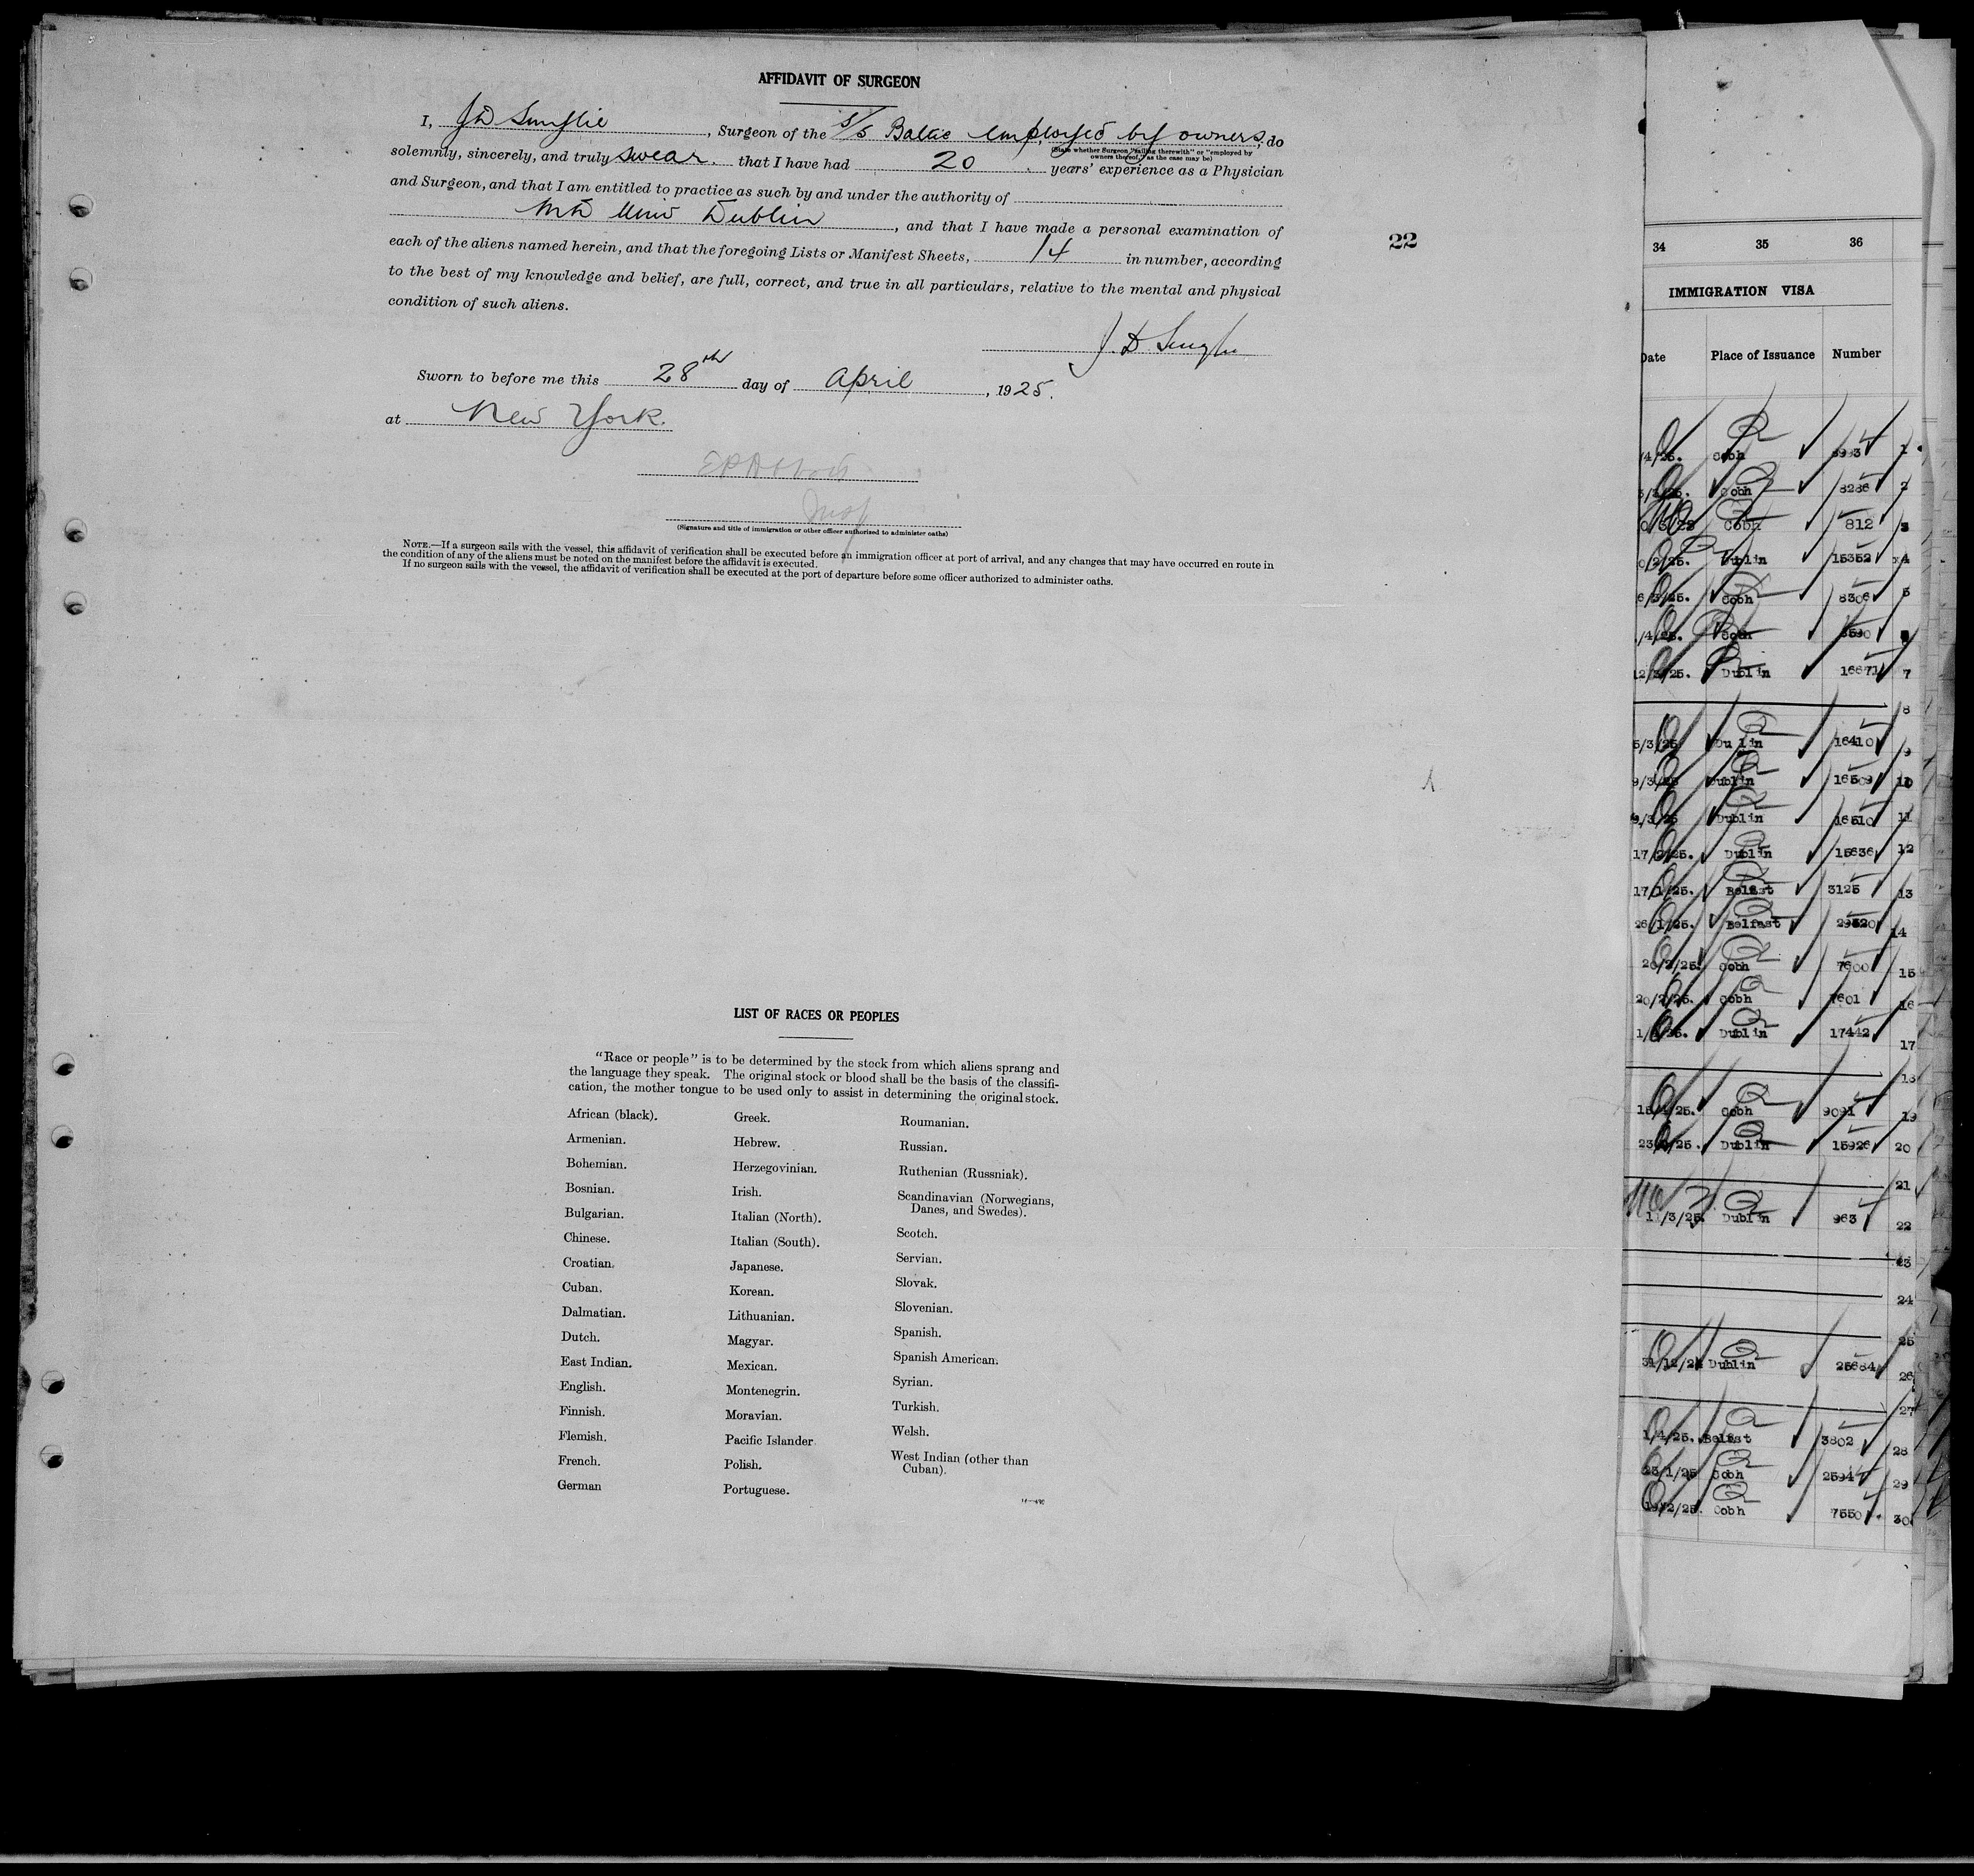 AFFIDAVIT OF SURGEON
I, J D , Surgeon of the S/S Baltic employed by owners, do
(State whether Surgeon "sailing therewith" or "employed by
owners thereof," as the case may be)
solemnly, sincerely, and truly swear. that I have had 20 years' experience as a Physician
and Surgeon, and that I am entitled to practice as such by and under the authority of
Dublin , and that I have made a personal examination of
each of the aliens named herein, and that the foregoing Lists or Manifest Sheets, 14 in number, according
to the best of my knowledge and belief, are full, correct, and true in all particulars, relative to the mental and physical
condition of such aliens.
J. D.
Sworn to before me this 28th day of April , 1925.
at New York.
Insp
(Signature and title of immigration or other officer authorized to administer oaths)
NOTE.—If a surgeon sails with the vessel, this affidavit of verification shall be executed before an immigration officer at port of arrival, and any changes that may have occurred en route in
the condition of any of the aliens must be noted on the manifest before the affidavit is executed.
If no surgeon sails with the vessel, the affidavit of verification shall be executed at the port of departure before some officer authorized to administer oaths.
22
LIST OF RACES OR PEOPLES
"Race or people" is to be determined by the stock from which aliens sprang and
the language they speak. The original stock or blood shall be the basis of the classifi-
cation, the mother tongue to be used only to assist in determining the original stock.
African (black).
Armenian.
Bohemian.
Bosnian.
Bulgarian.
Chinese.
Croatian.
Cuban.
Dalmatian.
Dutch.
East Indian.
English.
Finnish.
Flemish.
French.
German
Greek.
Hebrew.
Herzegovinian.
Irish.
Italian (North).
Italian (South).
Japanese.
Korean.
Lithuanian.
Magyar.
Mexican.
Montenegrin.
Moravian.
Pacific Islander
Polish.
Portuguese.
Roumanian.
Russian.
Ruthenian (Russniak).
Scandinavian (Norwegians,
Danes, and Swedes).
Scotch.
Servian.
Slovak.
Slovenian.
Spanish.
Spanish American.
Syrian.
Turkish.
Welsh.
West Indian (other than
Cuban).
34 35 36
IMMIGRATION VISA
Date Place of Issuance Number
/4/25. Cobh 1
Cobh 8286 2
Cobh 812 3
Dublin 15352 4
Cobh 5
Cobh
Dublin 16671 7
8
5/3/25 Du lin 16410 9
9/3/25 Dublin 16509 10
9/3/25 Dublin 16510 11
17/2/25. Dublin 15636 12
17/1/25. Belfast 3125 13
26/1/25. Belfast 14
20/2/25. Cobh 7600 15
20/2/25. Cobh 7601 16
1/4/25. Dublin 17442 17
18
15/4/25. Cobh 9091 19
23/2/25. Dublin 15926 20
21
11/3/25. Dublin 963 22
23
24
25
31/12/24 Dublin 26
27
1/4/25. Belfast 3802 28
Cobh 2594 29
19/2/25. Cobh 7550 30